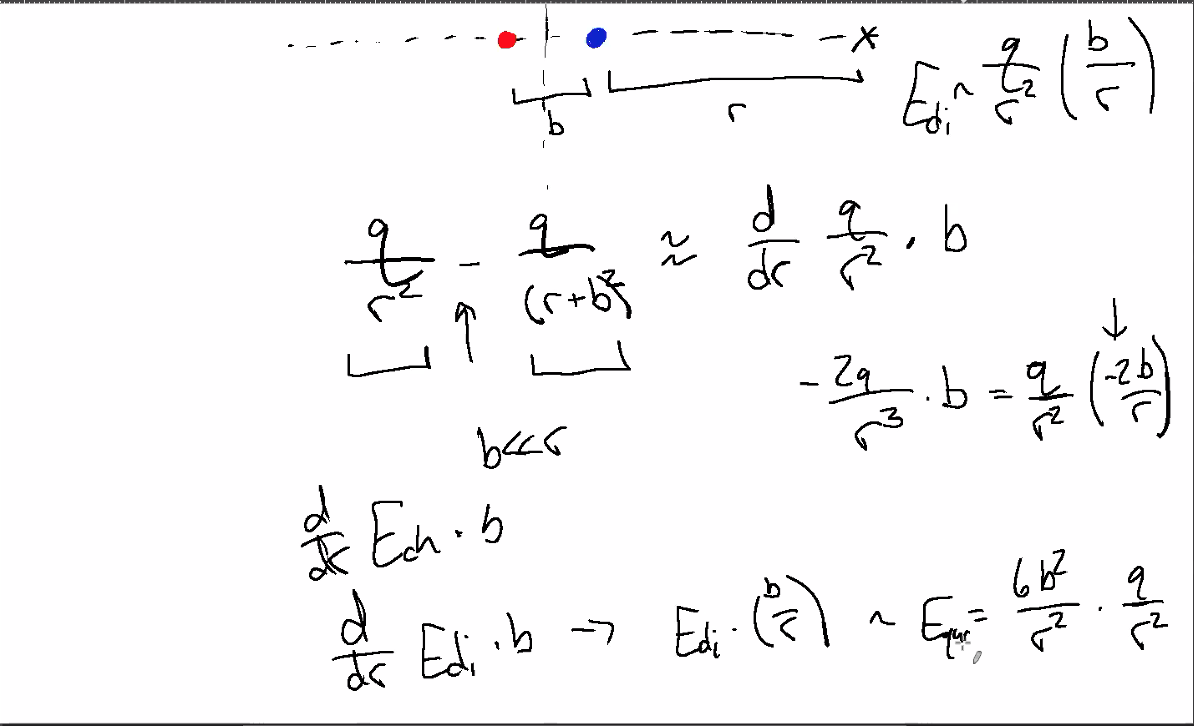 b
r
E_di ~ q/r² (b/r)
q/r² - q/(r+b)² ≈ d/dr q/r² · b
- 2q/r³ · b = q/r² (-2b/r)
b<<r
d/dr E_ch · b
d/dr E_di · b → E_di · (b/r) ~ E_qu = 6b²/r² · q/r²